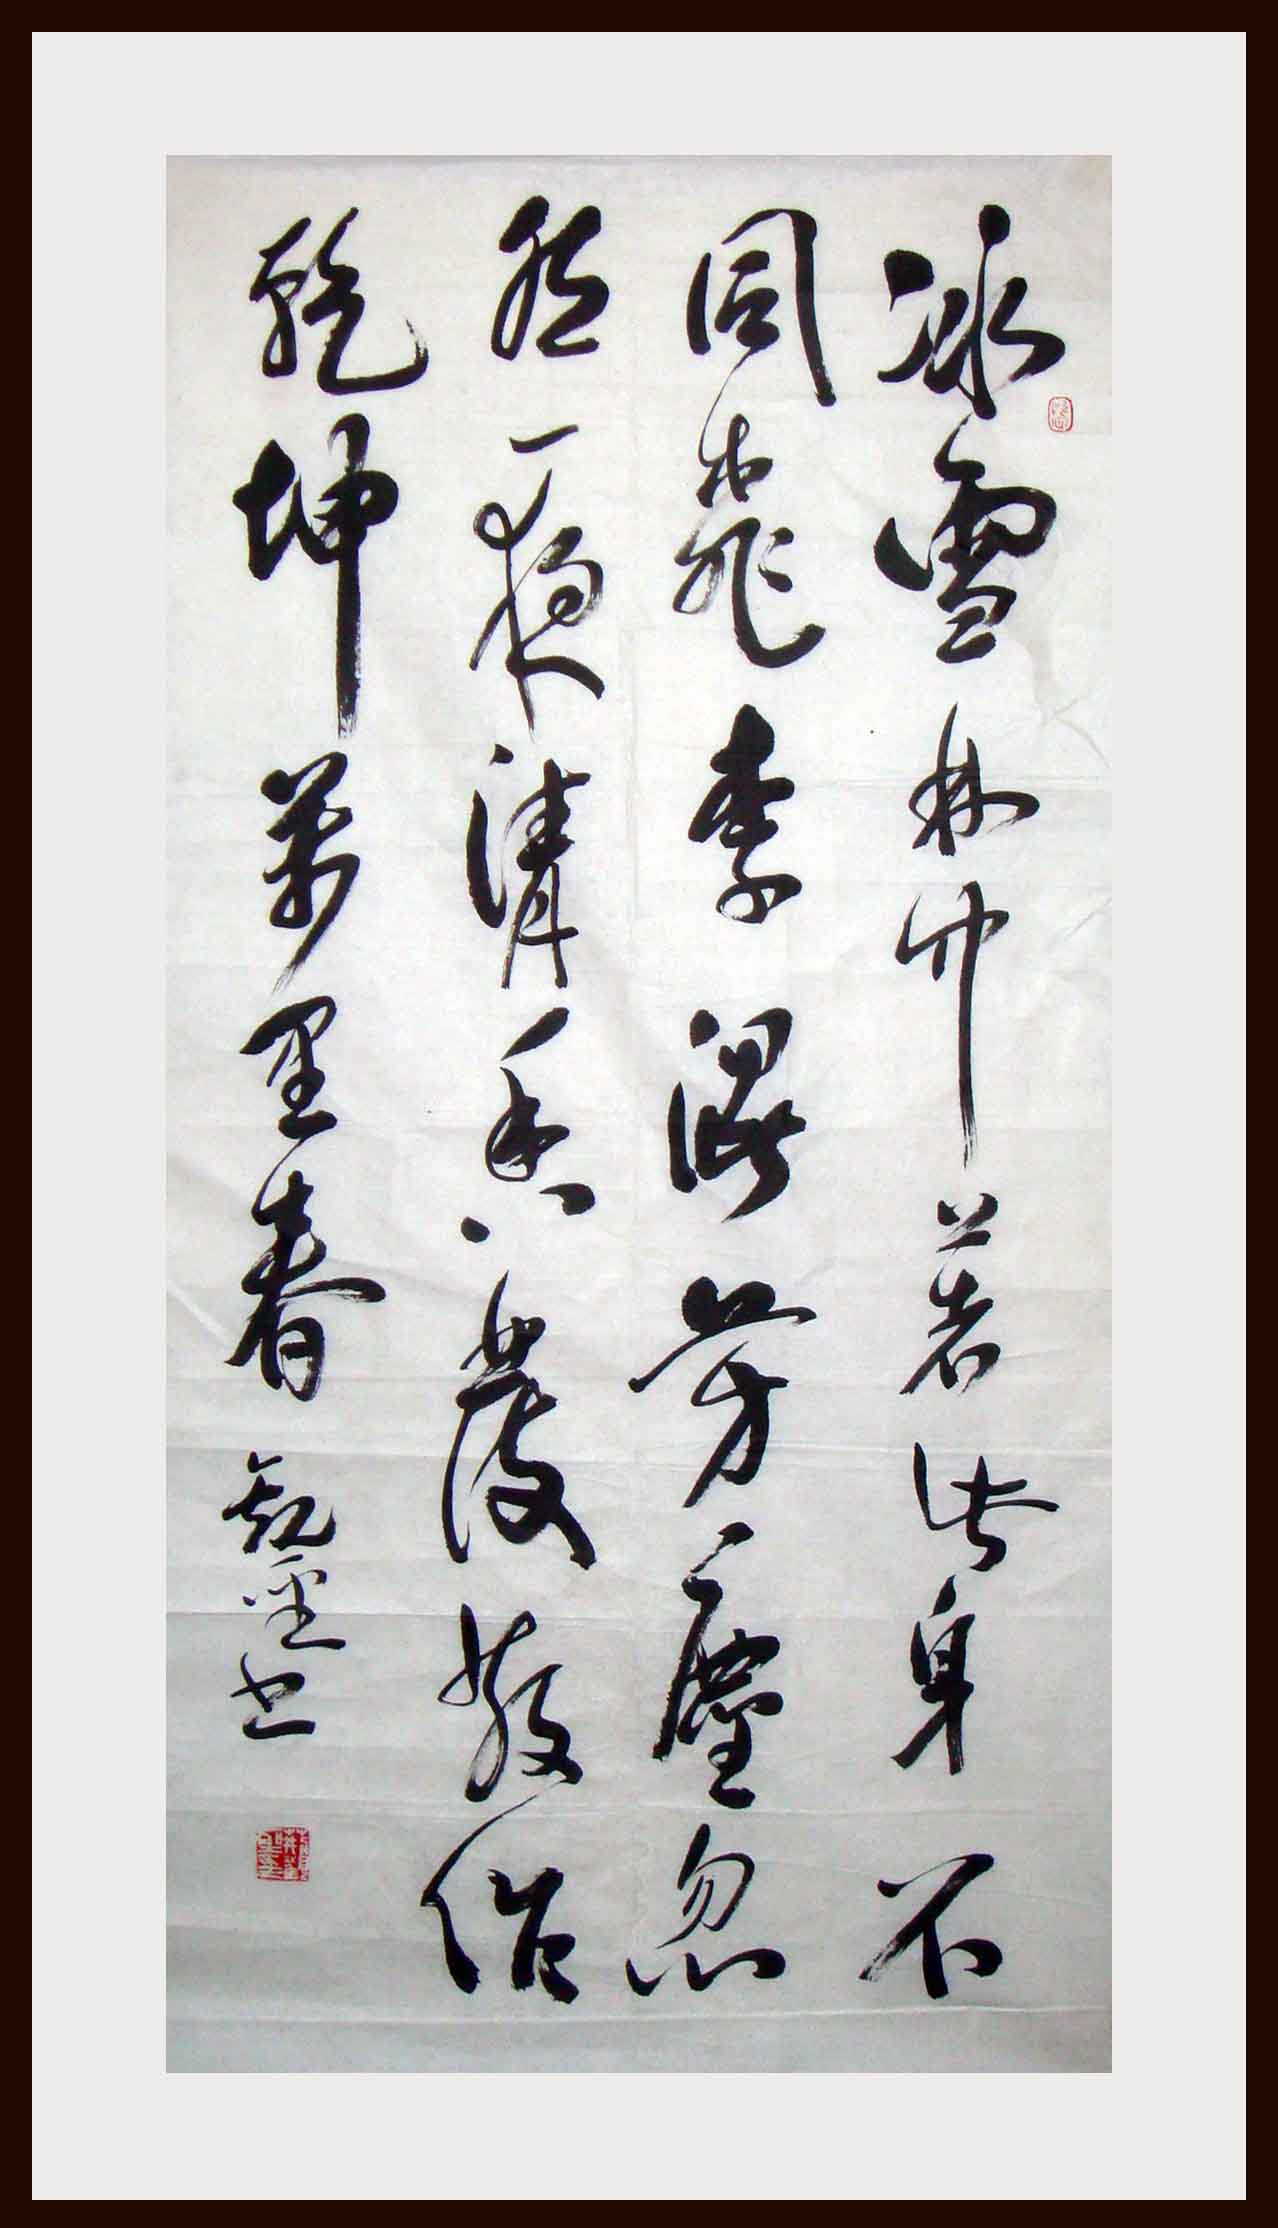 冰雪林中著此身不
同桃李混芳塵忽
然一夜清香發散作
乾坤萬里春